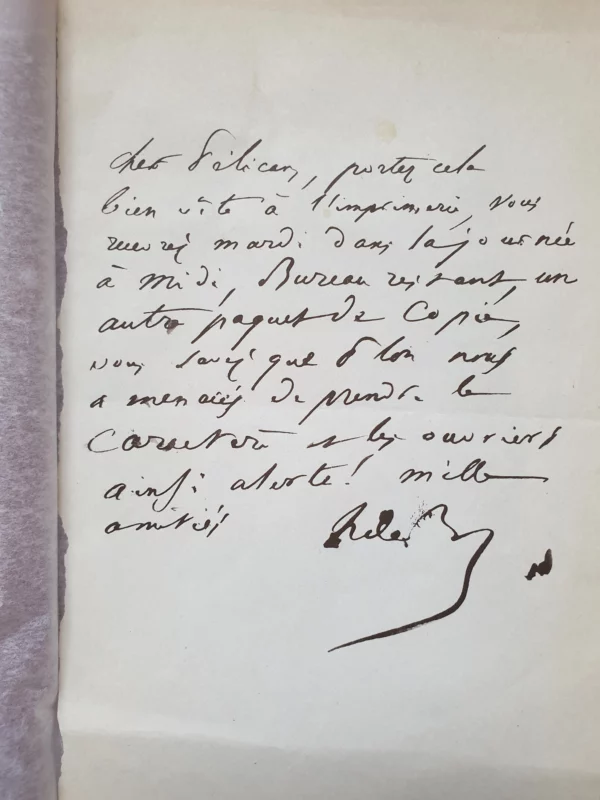 cher Pélican, portez cela
bien vite à l'imprimerie, vous
recevrez mardi dans la journée
à midi, Bureau restant, un
autre paquet de Copie,
vous savez que Plon nous
a menacés de prendre le
Caractère et les ouvriers
ainsi alerte! mille
amitiés